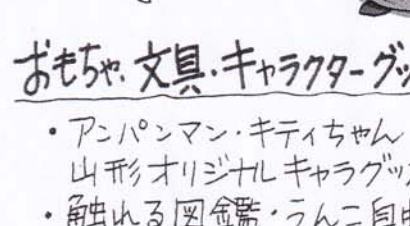 おもちゃ、文具・キャラクターグッ
・アンパンマン・キティちゃん
山形オリジナルキャラグッズ
・触れる図鑑・うんこ自由